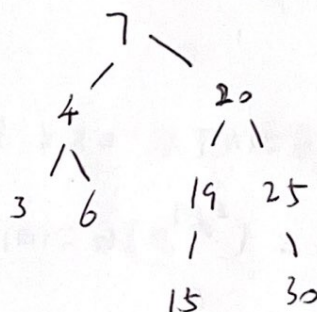 7
4 20
3 6 19 25
15 30